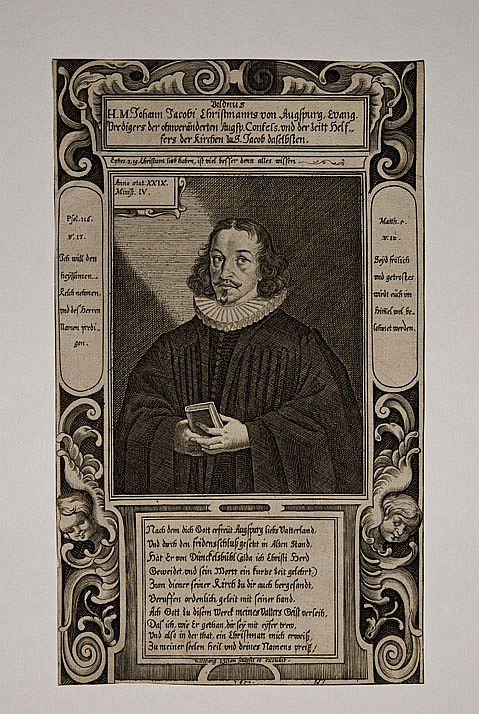 Bildnus
H. M. Johann Jacobi Christmanns von Augspurg, Evang.
Predigers der ohnveränderten Augsp. Confess. und der Zeitt Helf-
fers der Kirchen bu S. Jacob daselbsten.
Ephes. 3. 19. Christum lieb haben, ist viel besser denn alles wissen
Anno ætat. XXIX.
Minist. IV.
Psal. 116.
v. 13.
Ich will den
heylsamen
Kelch nehmen
und des Herren
Namen predi-
gen.
Matth. 5.
V. 12.
Seyd frölich
und getrostes
wirdt euch im
Himel wol be-
lohnet werden.
Nach dem dich Gott erfreüt Augspurg liebs Vatterland,
Und durch den fridensschluß gesetzt in Alten Stand,
Hat Er von Dünckelsbühl (alda ich Christi Herd
Geweidet, und sein Wortt ein kurtze Zeit gelehrt,)
Zum diener seiner Kirch zu dir auch hergesandt,
Beruffen ordenlich, geleit mit seiner hand.
Ach Gott zu disem Werck meines Vatters Geist verleih,
Das ich, wie Er gethan, dir sey mit eyfer trew,
Und also in der that, ein Christman mich erweiß,
Zu meiner seelen heil und deines Namens preiß,
Kilian sculpsit et excudit.